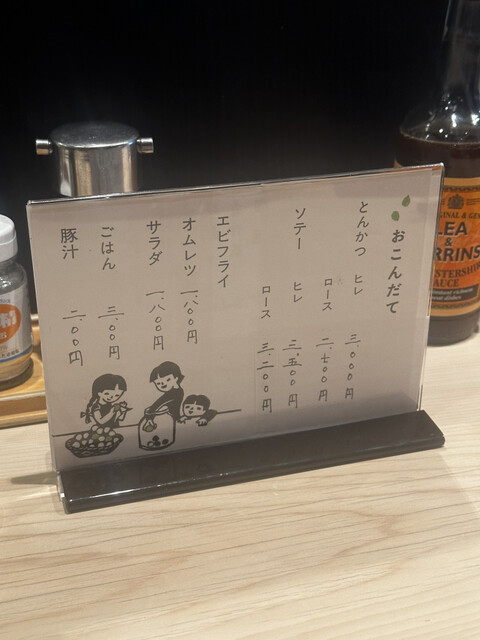 おこんだて
とんかつ ヒレ 三、〇〇〇円
ロース 二、七〇〇円
ソテー ヒレ 三、五〇〇円
ロース 三、二〇〇円
エビフライ
オムレツ 一、八〇〇円
サラダ 一、八〇〇円
ごはん 三〇〇円
豚汁 二〇〇円
LEA
&
RRINS